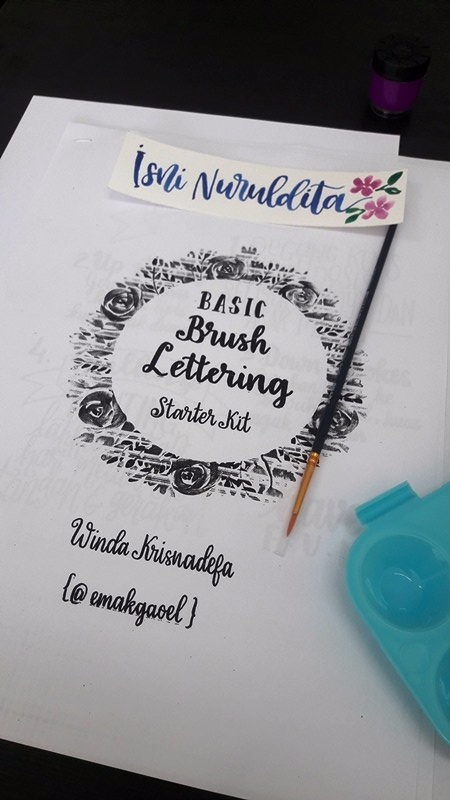 İsni Nuruldita
BASIC
Brush
Lettering
Starter Kit
Winda Krisnadefa
{@emakgaoel}